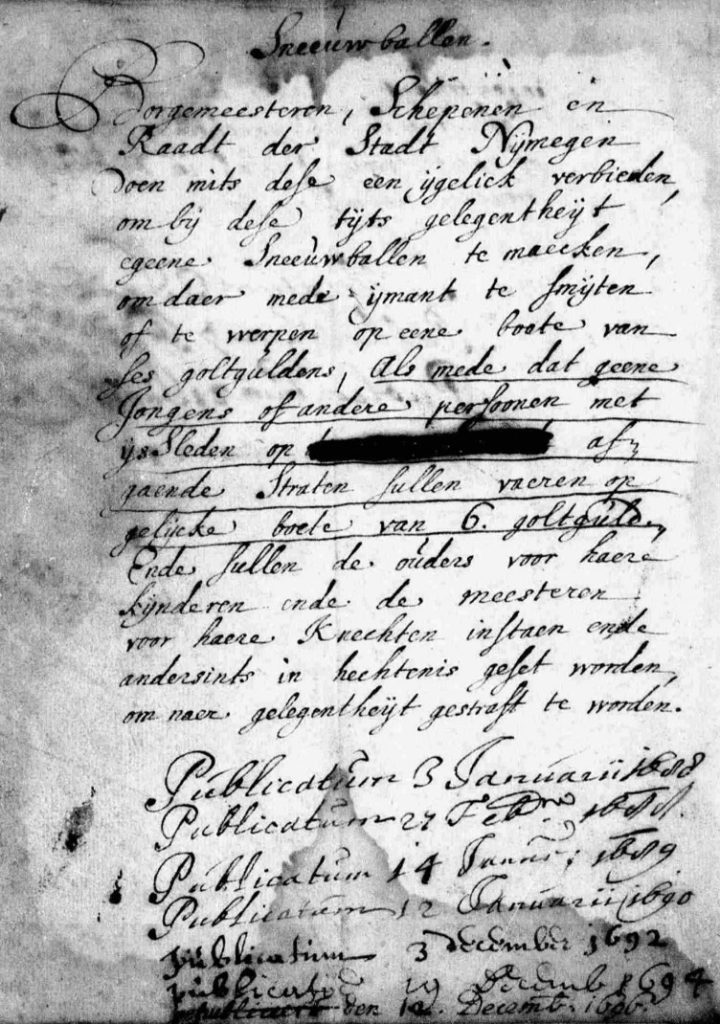 Sneeuwballen.
Borgemeesteren, Schepenen en
Raadt der Stadt Nijmegen
doen mits dese een ijgelick verbieden,
om bij dese tijts gelegentheijt
egeene Sneeuwballen te maecken,
om daer mede ijmant te smijten
of te werpen op eene boete van
ses goltguldens, Als mede dat geene
Jongens of andere persoonen met
ijs Sleden op af
gaende Straten sullen vaeren op
gelijcke boete van 6. goltguld.
Ende sullen de ouders voor haere
kijnderen ende de meesteren
voor haere Knechten instaen ende
andersints in hechtenis geset worden,
om naer gelegentheijt gestraft te worden.
Publicatum 3 Januarii 1688
Publicatum 27 Feb 1688.
Publicatum 14 1689
Publicatum 12 Januarii 1690
publicatum 3 december 1692
publicat 19 Decemb 1694
den 12. Decemb. 1696.